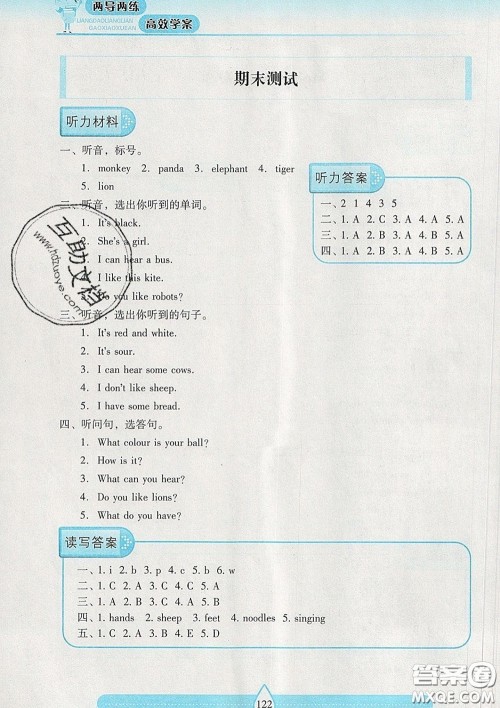 两导两练
LIANGDAOLIANGLIAN
高效学案
GAOXIAOXUEAN
期末测试
听力材料
一、听音，标号。
1. monkey 2. panda 3. elephant 4. tiger
5. lion
二、听音，选出你听到的单词。
1. It's black.
2. She's a girl.
3. I can hear a bus.
4. I like this kite.
5. Do you like robots?
三、听音，选出你听到的句子。
1. It's red and white.
2. It's sour.
3. I can hear some cows.
4. I don't like sheep.
5. I have some bread.
四、听问句，选答句。
1. What colour is your ball?
2. How is it?
3. What can you hear?
4. Do you like lions?
5. What do you have?
听力答案
一、2 1 4 3 5
二、1. A 2. C 3. A 4. A 5. A
三、1. A 2. A 3. B 4. B 5. A
四、1. A 2. B 3. A 4. B 5. A
读写答案
一、1. i 2. b 3. p 4. c 5. b 6. w
二、1. C 2. A 3. C 4. C 5. A
三、1. A 2. B 3. C 4. A 5. B
四、1. hands 2. sheep 3. feet 4. noodles 5. singing
五、1. C 2. A 3. B 4. E 5. D
122
互助文档
www.hdzuoye.com
答案圈
MXQE.COM